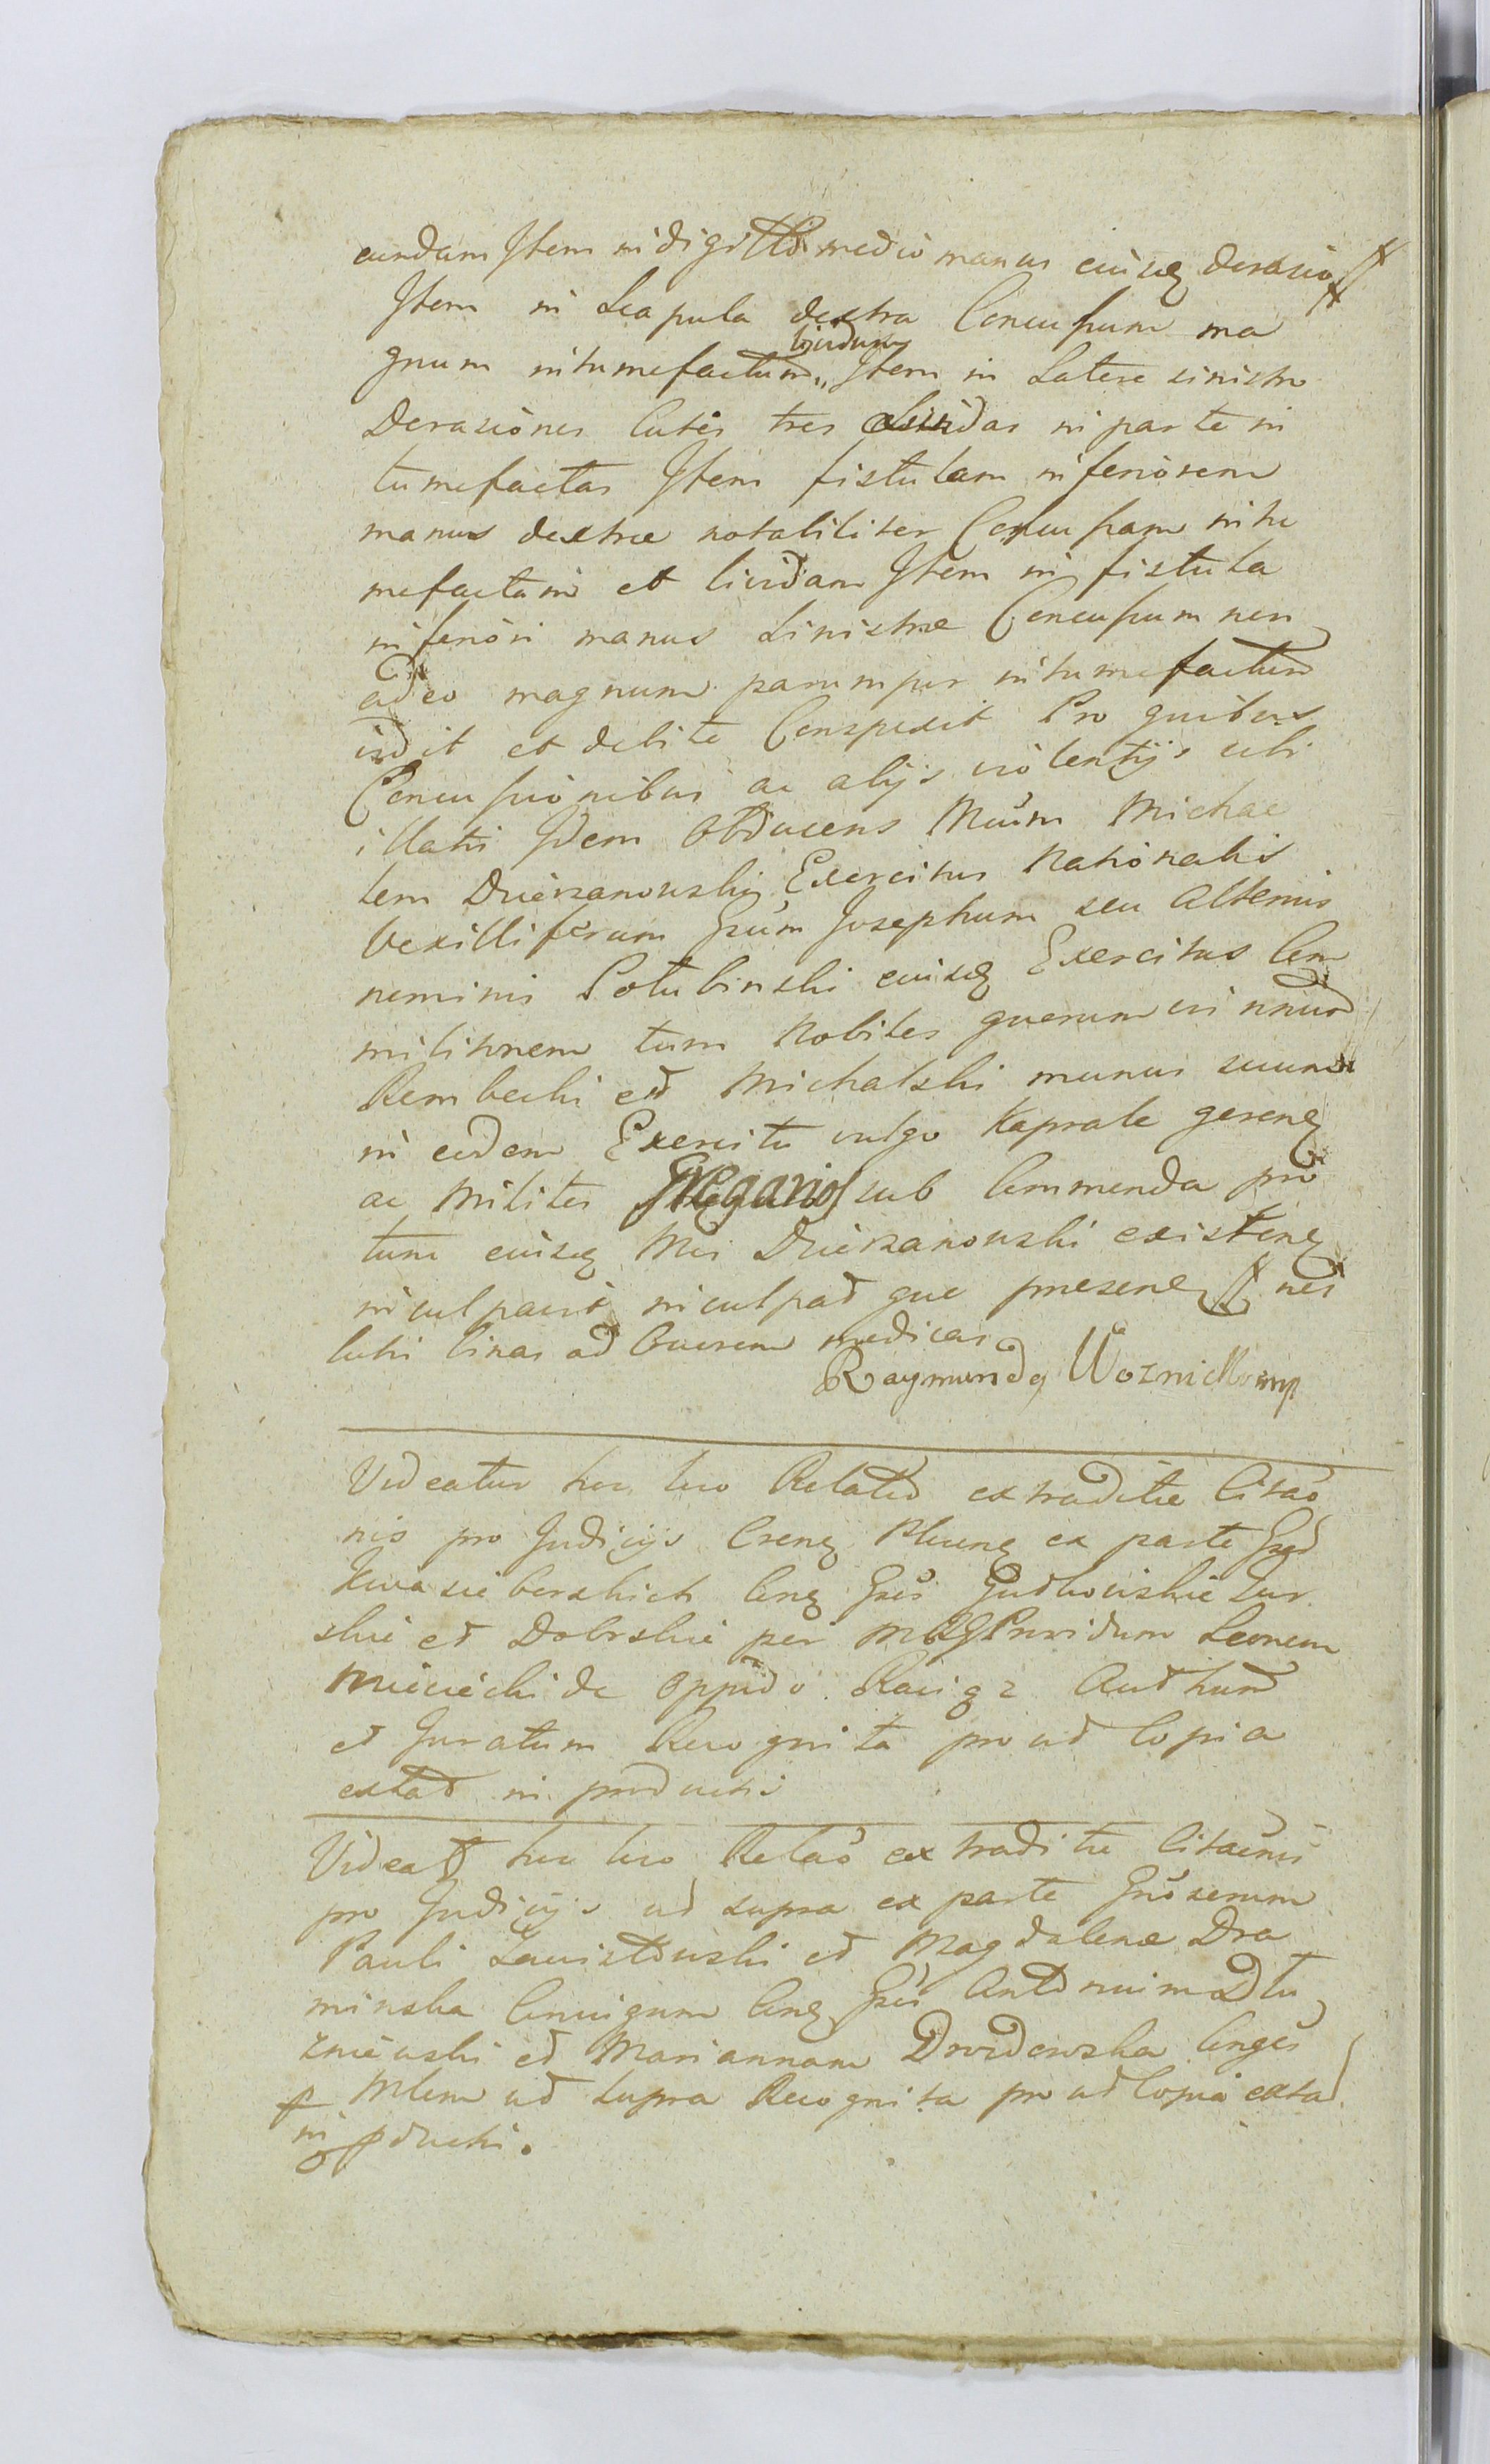 eundam Item in digitto medio manus eiusq derasio
Item in Scapula dextra Concussum ma
gnum intumefactum lividum Item in Latere sinistro
Derasiones Cutis tres lividas in parte in
tumefactas Item fistulam inferiorem
manus dextrae notabiliter Concussam intu
mefactam et lividam Item in fistula
inferiori manus sinistrae Concussum non
adeo magnum parumper intumefactum
vidit et debite Conspexit Pro quibus
Concussionibus ac alijs violentijs sibi
illatis Idem Obducens Mcum Michae
lem Dzierzanowski Exercitus Nationalis
Vexilliferum Gsum Josephum seu Alterius
nominis Potubinski eiusq Exercitus Com
militonem tum Nobiles quorum unus
Rembecki et Michalski munus suum
in eodem Exercitu vulgo Kaprale geren
ac Milites Gregarios sub Commenda pro
tunc eiusq Mci Dzierzanowski existen
inculpavit inculpat que presen
luti binas ad Curem medicas
Raymundq Woznicki mp

Videatur hoc loco Relatio extraditae Citao
nis pro Judicijs Cren Plocen ex parte Gsod
Kwasieborskich Con Gsos Gudkowskie Sur
skie et Dobrskie per Providum Leonem
Miecicki de oppido Raciąz Authum
et Juratum Recognita prout Copia
extat in productis

Videat hoc loco Relao extraditae Citaonis
pro Judicijs ut supra ex parte Gnosorum
Pauli Zawistowski et Magdalenae Dra
minska Conjugum Con Gsos Antonium Dłu
zniewski et Mariannam Drozdowska Conges
p Mlem ut supra Recognita prout Copia extat
in pductis.